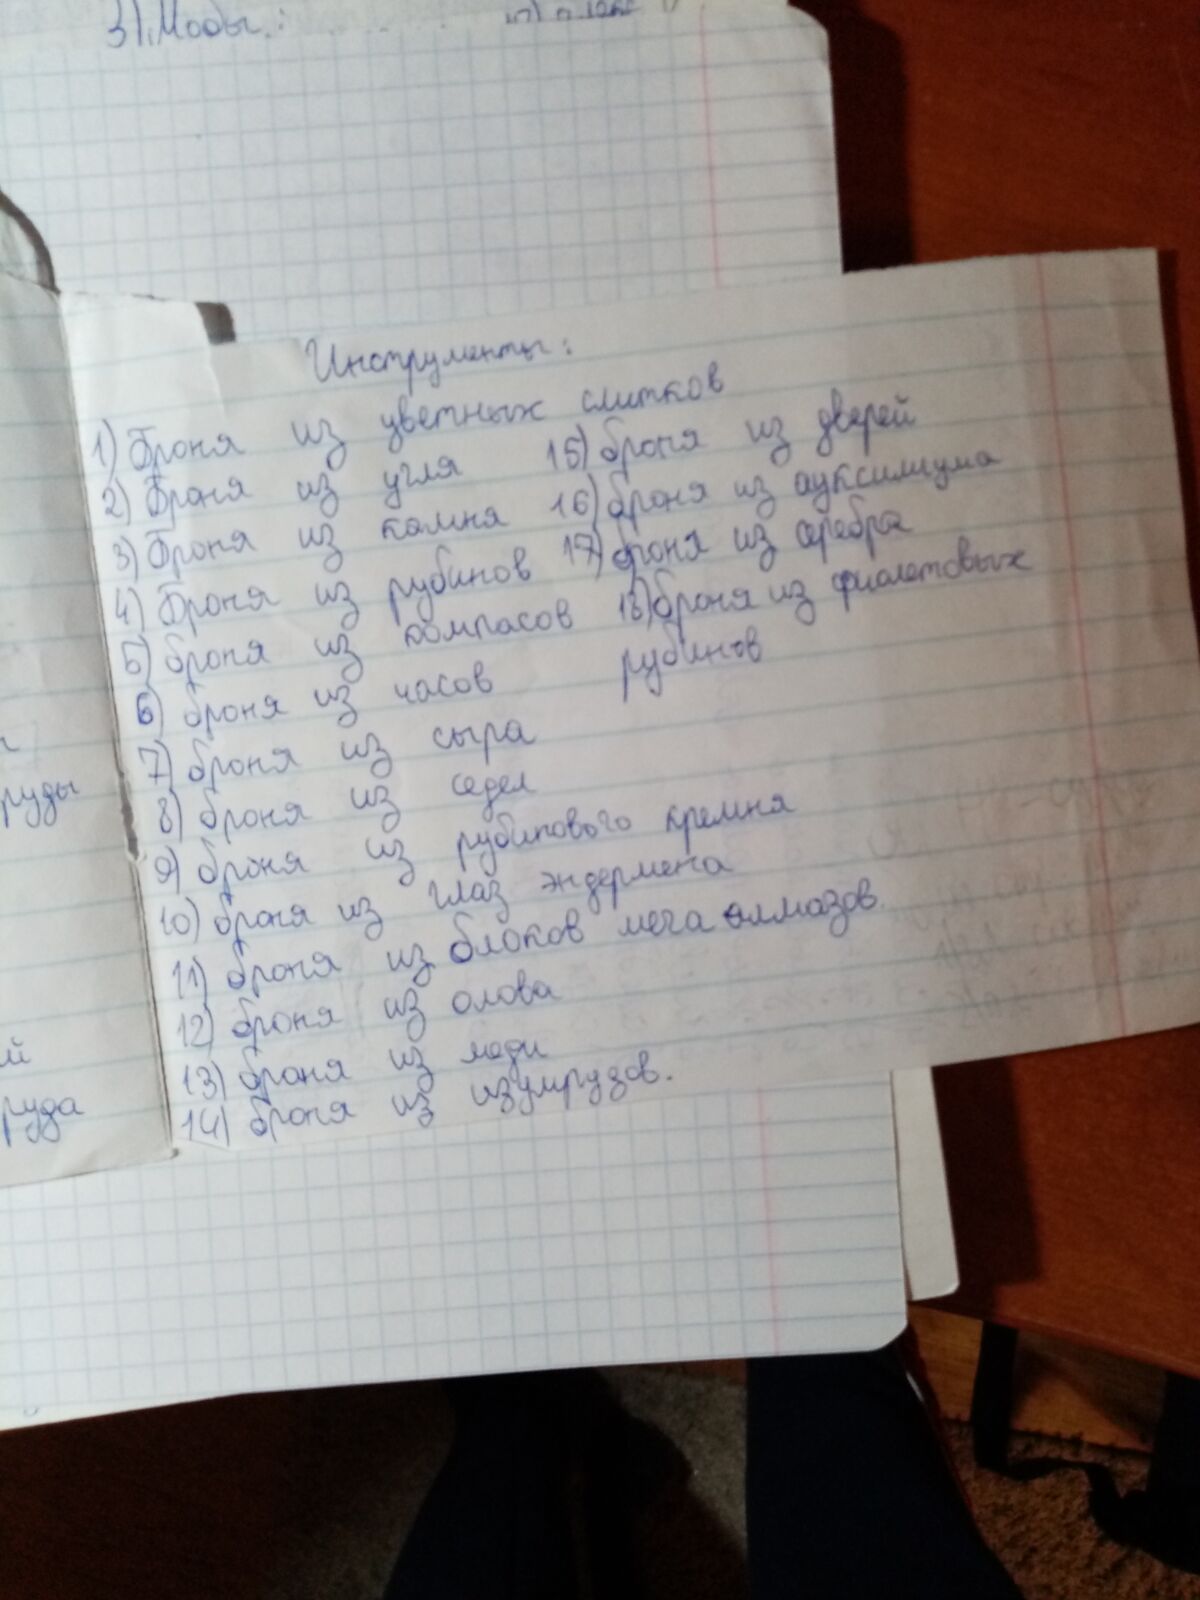 3). Моды:
Инструменты:
1) Броня из цветных слитков
2) Броня из угля
3) Броня из камня
4) Броня из рубинов
5) броня из компасов
6) броня из часов
7) броня из сыра
8) броня из седел
9) броня из рубинового кремня
10) броня из глаз эндермена
11) броня из блоков мега алмазов.
12) броня из олова
13) броня из меди
14) броня из изумрудов.
15) броня из дверей
16) броня из ауксилиума
17) броня из серебра
18) броня из фиолетовых
рубинов
руды
руда